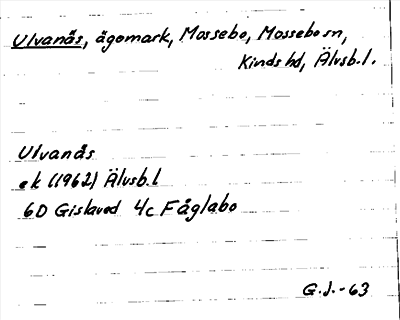 Ulvanås, ägomark, Mossebo, Mossebo sn,
Kinds hd, Älvsb. l.
Ulvanås
ek (1962) Älvsb. l
6D Gislaved 4c Fåglabo
G.J.-63